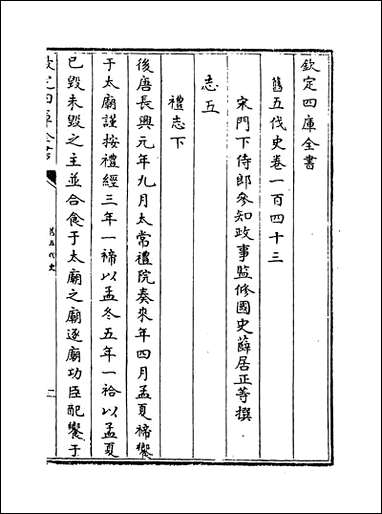 欽定四庫全書
舊五代史卷一百四十三
宋門下侍郎參知政事監修國史薛居正等撰
志五
禮志下
後唐長興元年九月太常禮院奏來年四月孟夏禘饗
于太廟謹按禮經三年一禘以孟冬五年一祫以孟夏
已毀未毀之主並合食于太廟之廟逐廟功臣配饗于
欽定四庫全書
舊五代史